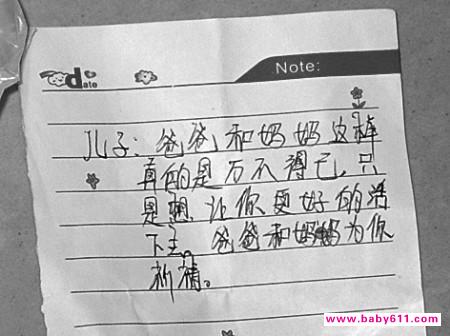 date
Note:
儿子：爸爸和妈妈这样
真的是万不得已，只
是想让你更好的活
下去。爸爸和妈妈为你
祈福。
www.baby611.com